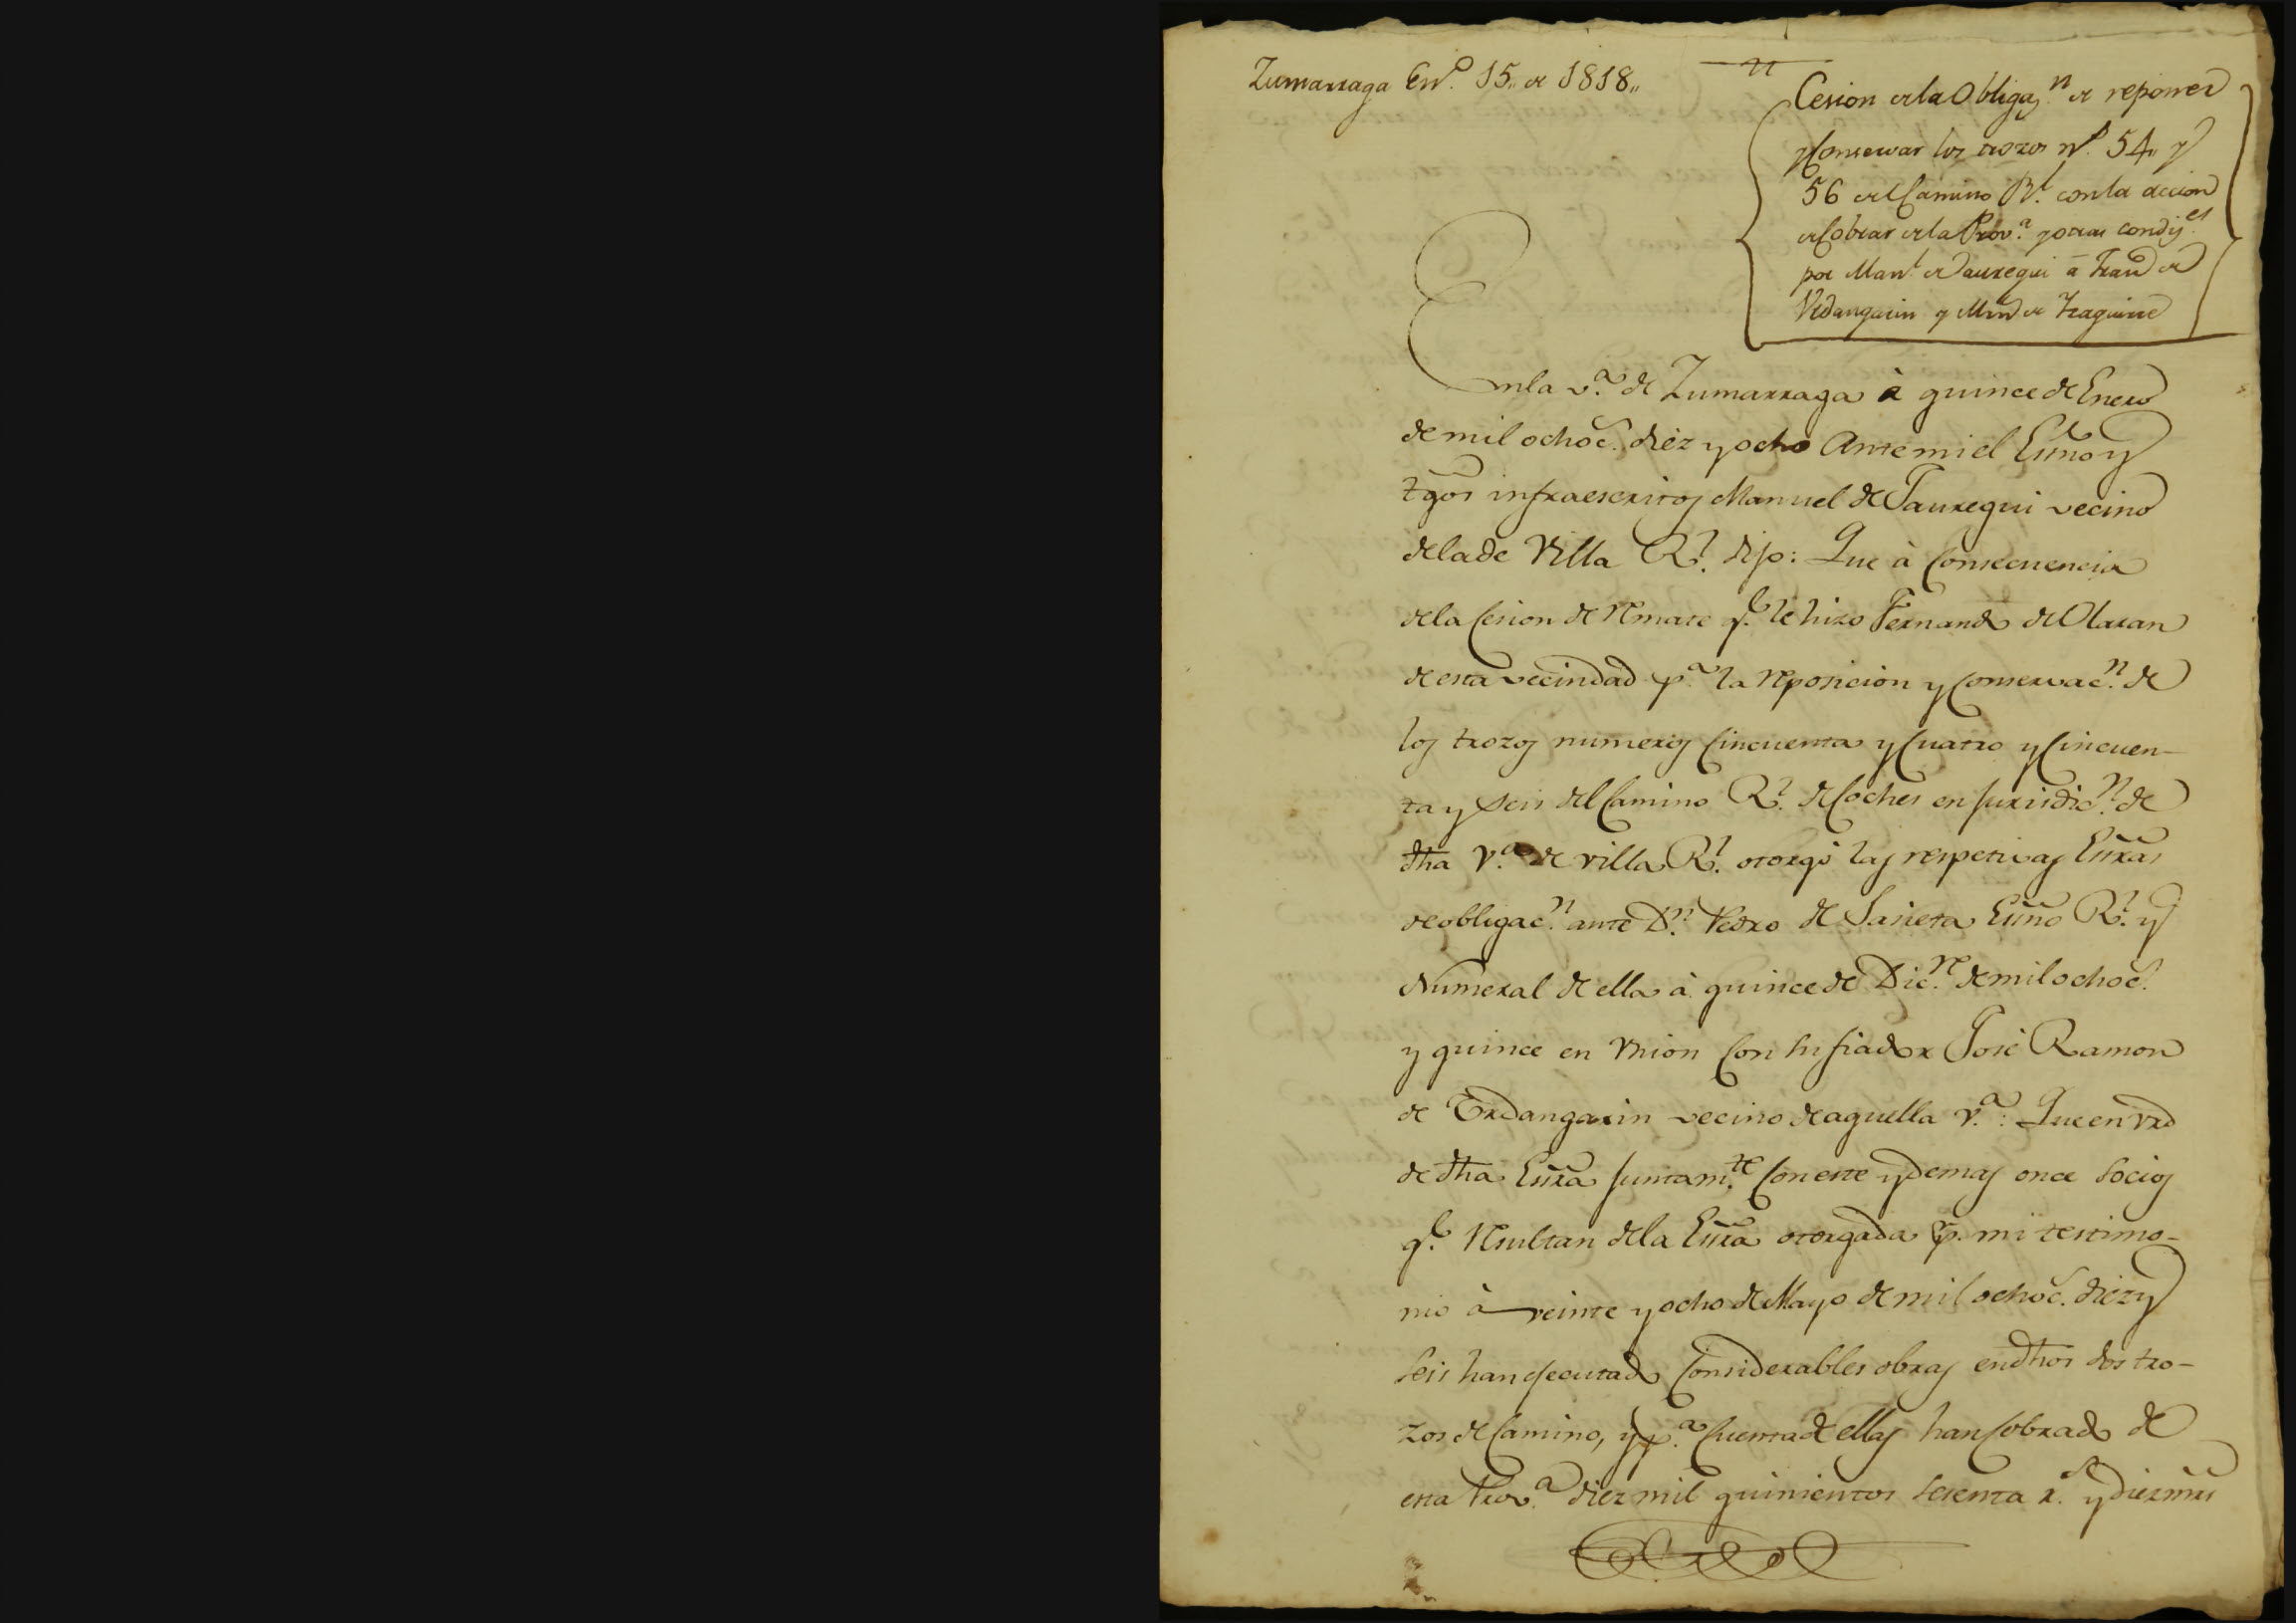 Zumarraga En.º 15,, de 1818,,
Cesion de la Obligaz.n de reponer
y Conservar los trozos n.º 54,, y
56 del Camino R.l con la accion
de Cobrar de la Prov.a y otras condiz.es
por Man.l de Jauregui â Fran.co de
Vrdangarin y M.n de Yzaguirre
En la v.a de Zumarraga à quince de Enero
de mil ochoc.s diez y ocho Ante mi el Essno y
tgos infraescritos Manuel de Jauregui vecino
de la de Villa R.l dijo: Que à Consecuencia
de la Cesion de remate q.e le hizo Fernando de Olaran
de esta vecindad p.a la reposicion y Conservac.n de
los trozos numeros Cincuenta y Cuatro y Cincuen-
ta y Seis del Camino R.l de Coches en Jurisdic.n de
dha V.a de Villa R.l otorgó las respetivas Essras
de obligac.n ante D.n Pedro de Sasieta Essno R.l y
Numeral de ella à quince de Dic.re de mil ochoc.s
y quince en Vnion Con su fiador José Ramon
de Urdangarin vecino de aquella v.a: Que en vrd
de dha Essra Juntam.te Con este y demas once Socios
q.e Resultan de la Essra otorgada p. mi testimo-
nio à veinte y ocho de Mayo de mil ochoc.s diez y
Seis han ejecutado Considerables obras en dhos dos tro-
zos de Camino, y p.a Cuenta de ellas han Cobrado de
esta Prov.a diez mil quinientos Sesenta r.s y diez mrs